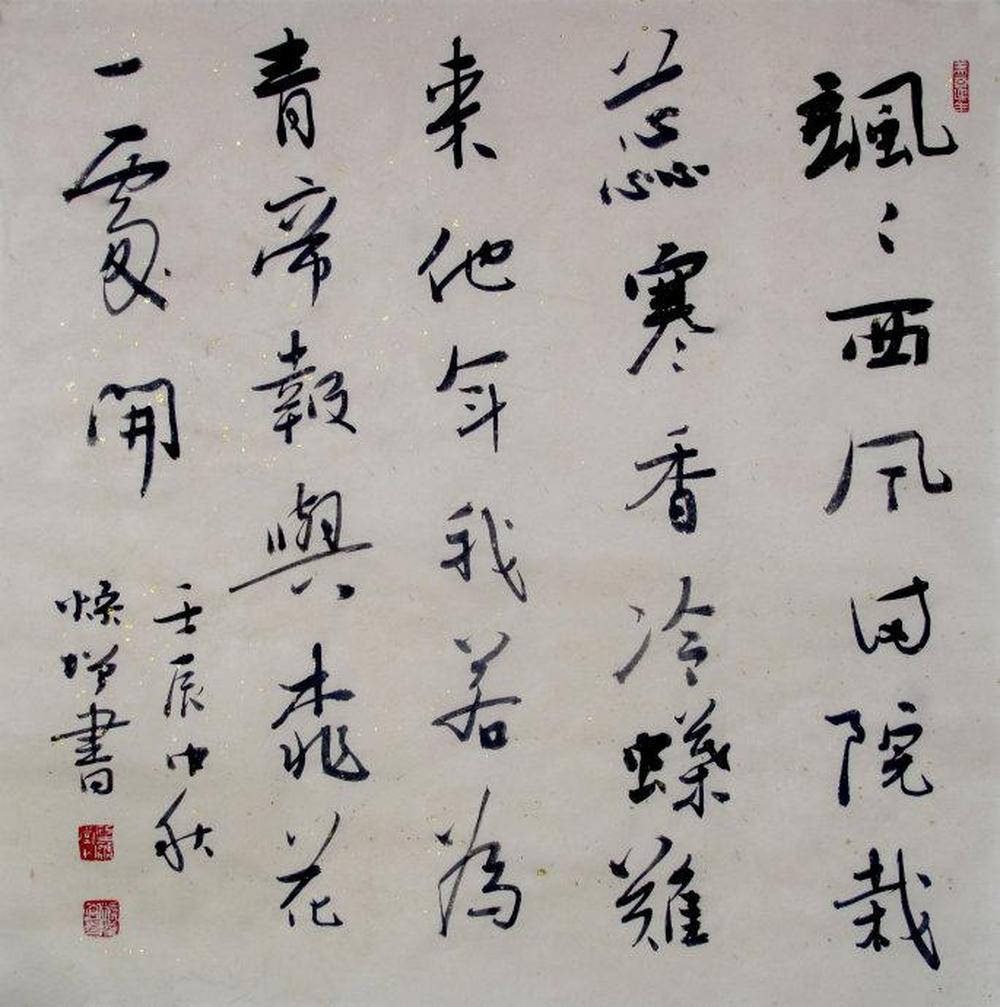 颯々西風滿院栽
蕊寒香冷蝶難
來他年我若為
青帝報與桃花
一處開
壬辰中秋
增書